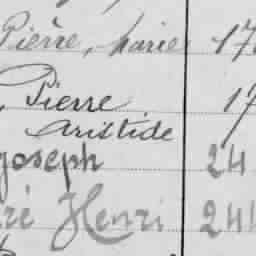 Pière, Marie 17
, Pierre 17
Aristide
Joseph 24
ré Henri 244